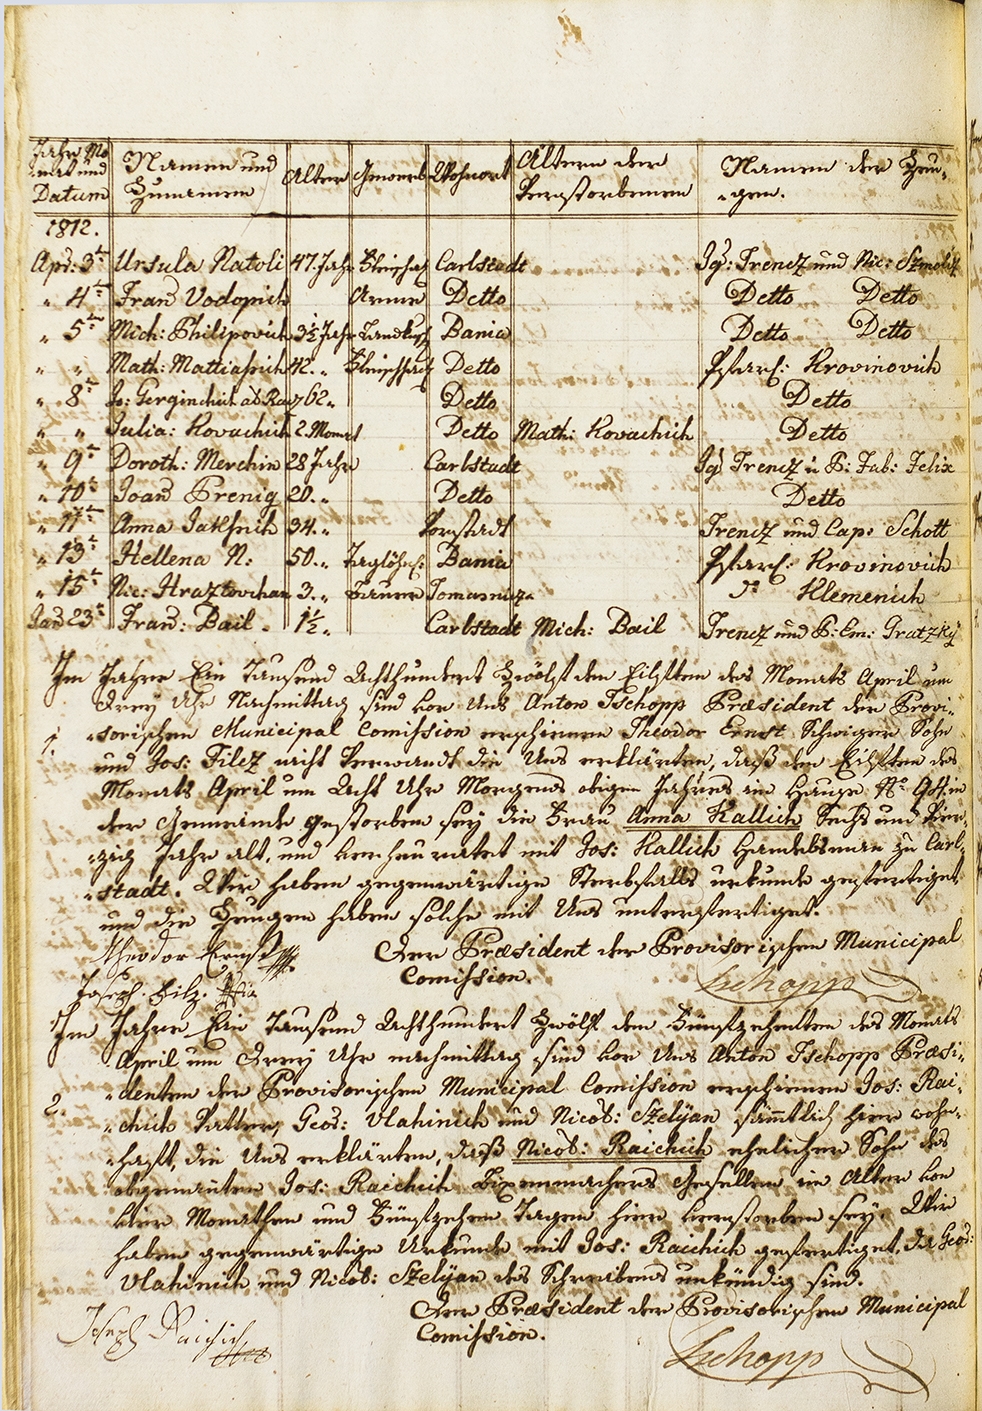 Jahr Mo- Namen und Alter Gewerb Wohnort Ältern der Namen der Zeu-
nat und Zunamen Verstorbenen -gen.
Datum
1812.
Apr: 3te Ursula Natoli 47. Jahr Carlstadt Ig: Trencz und Nic: Szmolcz
" 4te Franz Vodopich Arme Detto Detto Detto
" 5te Mich: Philipovich 3½ Jahr Bania Detto Detto
" " Math: Mattiashich 42. " Detto Pfarr: Krovinovich
" 8te Jo: Gerginchich ad Ray 62 " Detto Detto
" " Julia: Kovachich 2. Monat Detto Math: Kovachich Detto
" 9te Doroth: Merchin 28 Jahr Carlstadt Ig: Trencz u P: Fab: Felix
" 10te Joan Prenig 20. " Detto Detto
" 11te Anna Jakshich 34. " Vorstadt Trencz und Cap: Schott
" 13te Hellena N: 50. " Taglöhn: Bania Pfarr: Krovinovich
" 15te Nic: Hraztovchan 3. " Bauer Klemenich
Jan 23te Fran: Bail. 1½ " Carlstadt Mich: Bail Trencz und P: Em: Gratzky
Im Jahre Ein Tausend Achthundert Zwölf den Eilften des Monats April um
drey Uhr Nachmittag sind vor Uns Anton Tschopp Præsident der Provi-
1. -sorischen Municipal Comission erschienen Theodor Ernst Schwieger Sohn
und Jos: Filcz nicht Verwandt die Uns erklärten, daß den Eilften des
Monats April um Acht Uhr Morgends obigen Jahres im Hause No in
der Gemeinde gestorben sey die Frau Anna Kallich Sechs und Vier-
-zig Jahre alt, und verheuratet mit Jos: Kallich Handelsman zu Carl-
-stadt. Wir haben gegenwärtige Sterbfalls urkunde gefertiget
und die Zeugen haben solche mit Uns unterfertiget.
Theodor Ernst Der Præsident der Provisorischen Municipal
Joseph. Filz. Comission. Tschopp
Im Jahre Ein Tausend Achthundert Zwölf den Fünfzehenten des Monats
April um Drey Uhr nachmittag sind vor Uns Anton Tschopp Præsi-
-denten der Provisorischen Municipal Comission erschienen Jos: Rai-
2. -chich Vatter, Geor: Vlahinich und Nicol: Szelijan sämtlich hier wohn-
-haft, die Uns erklärten, daß Nicol: Raichich ehelicher Sohn des
obgenanten Jos: Raichich Büxenmachers Gesellen im Alter von
vier Monathen und Fünfzehen Tagen hier verstorben sey. Wir
haben gegenwärtige Urkunde mit Jos: Raichich gefertiget, da Geor:
Vlahinich und Nicol: Szelijan des Schreibens unkündig sind.
Der Præsident der Provisorischen Municipal
Joseph Raichich Comission.
Tschopp